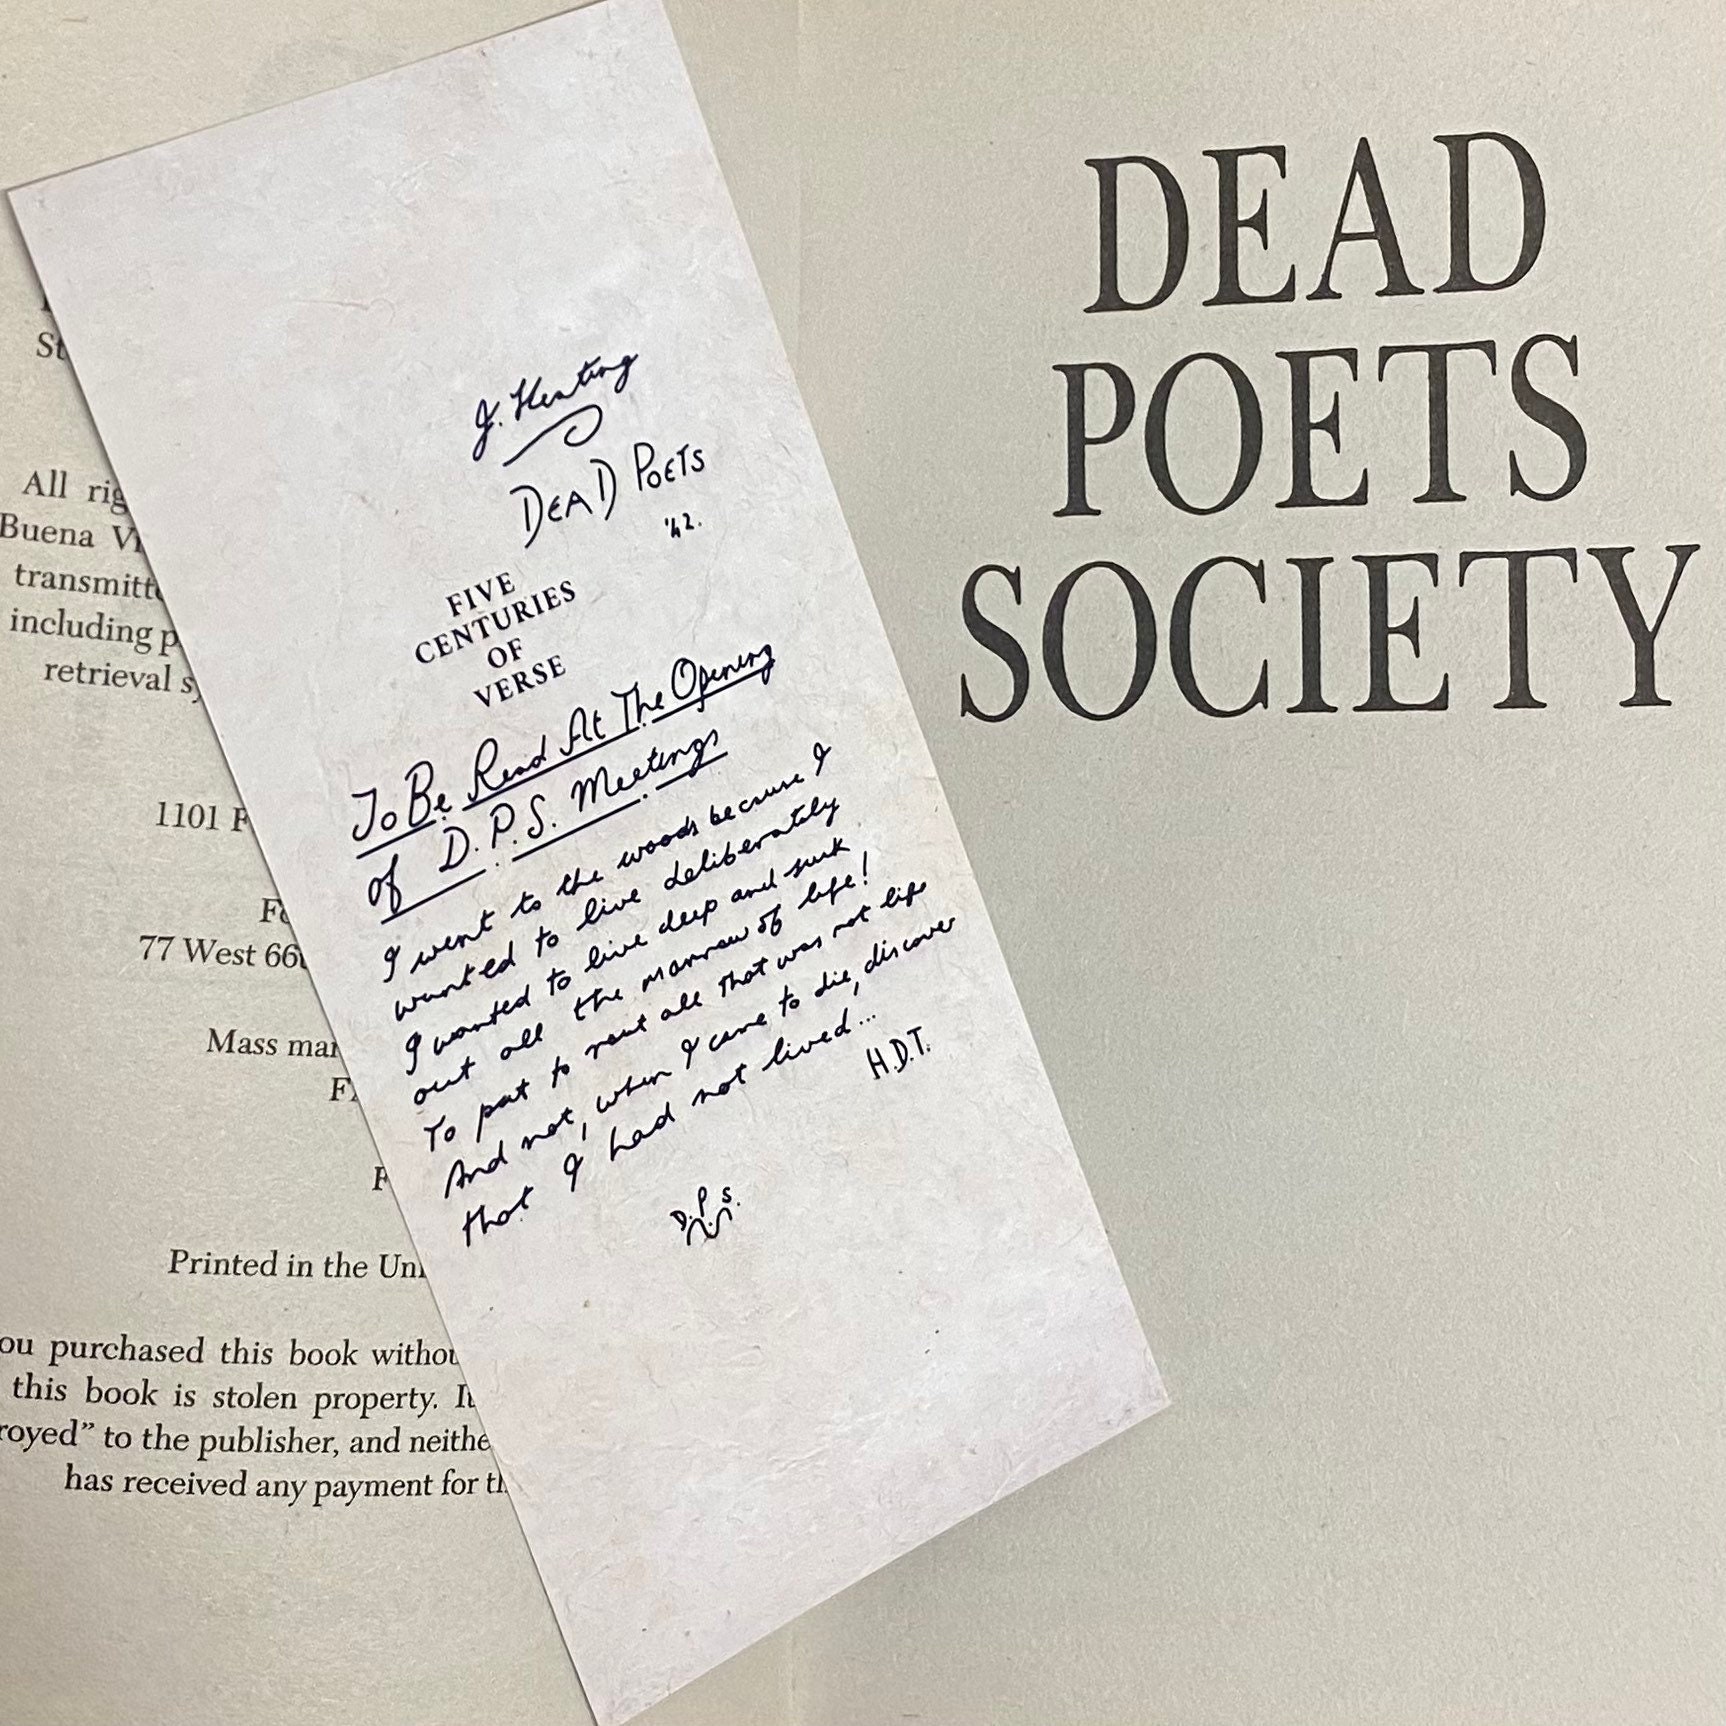 St
All rig
Buena Vi
transmitte
including p
retrieval s
1101 F
77 West 66t
Mass mar
Printed in the Uni
ou purchased this book withou
this book is stolen property. It
royed” to the publisher, and neithe
has received any payment for th
J. Keating
DEAD POETS
'42.
FIVE
CENTURIES
OF
VERSE
To Be Read At The Opening
of D.P.S. Meetings
I went to the woods because I
wanted to live deliberately
I wanted to live deep and suck
out all the marrow of life!
To put to rout all that was not life
And not, when I came to die, discover
that I had not lived...
H.D.T.
D.P.S.
DEAD
POETS
SOCIETY